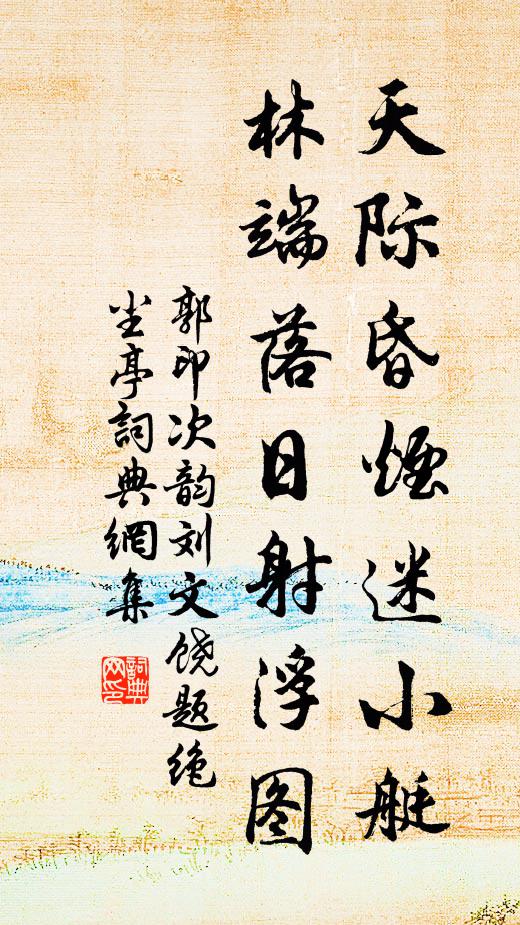 天际昏烟迷小艇
林端落日射浮图
郭印次韵刘文饶题绝
尘亭詞典網集
詞典
网印